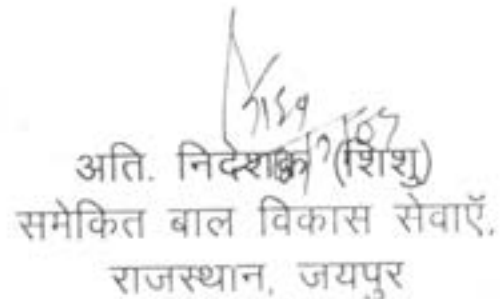 अति. निदेशक (शिशु)
समेकित बाल विकास सेवाऍ,
राजस्थान, जयपुर